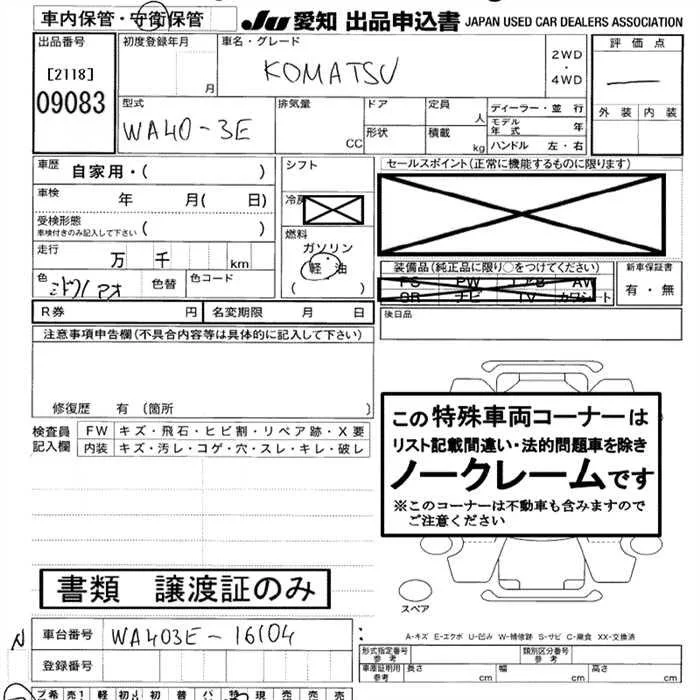 車内保管・守衛保管 JU 愛知 出品申込書 JAPAN USED CAR DEALERS ASSOCIATION
出品番号 初度登録年月 車名・グレード 評価点
[2118] 月 KOMATSU 2WD・4WD
09083
外装 内装
型式 排気量 ドア 定員 人 ディーラー・並行
WA40-3E CC 形状 積載 kg モデル年式 年
ハンドル 左・右
車歴 自家用・( ) シフト セールスポイント(正常に機能するものに限ります)
車検 年 月( 日) 冷房
受検形態
車検付きのみ記入して下さい ( ) 燃料
ガソリン
走行 万 千 km 軽油
( )
装備品(純正品に限り○をつけてください) 新車保証書
PS PW エアB AW
SR ナビ TV カワシート
有・無
色 色替 色コード
後日品
R券 円 名変期限 月 日
注意事項申告欄(不具合内容等は具体的に記入して下さい)
修復歴 有(箇所 )
検査員記入欄 FW キズ・飛石・ヒビ割・リペア跡・X要
内装 キズ・汚レ・コゲ・穴・スレ・キレ・破レ
この特殊車両コーナーは
リスト記載間違い・法的問題車を除き
ノークレームです
※このコーナーは不動車も含みますので
ご注意ください
書類 譲渡証のみ
スペア
N 車台番号 WA403E-16104
登録番号
A-キズ E-エクボ U-凹み W-補修跡 S-サビ C-腐食 XX-交換済
形式指定番号 参考 類別区分番号 参考
車庫証明用 参考 長さ cm 幅 cm 高さ cm